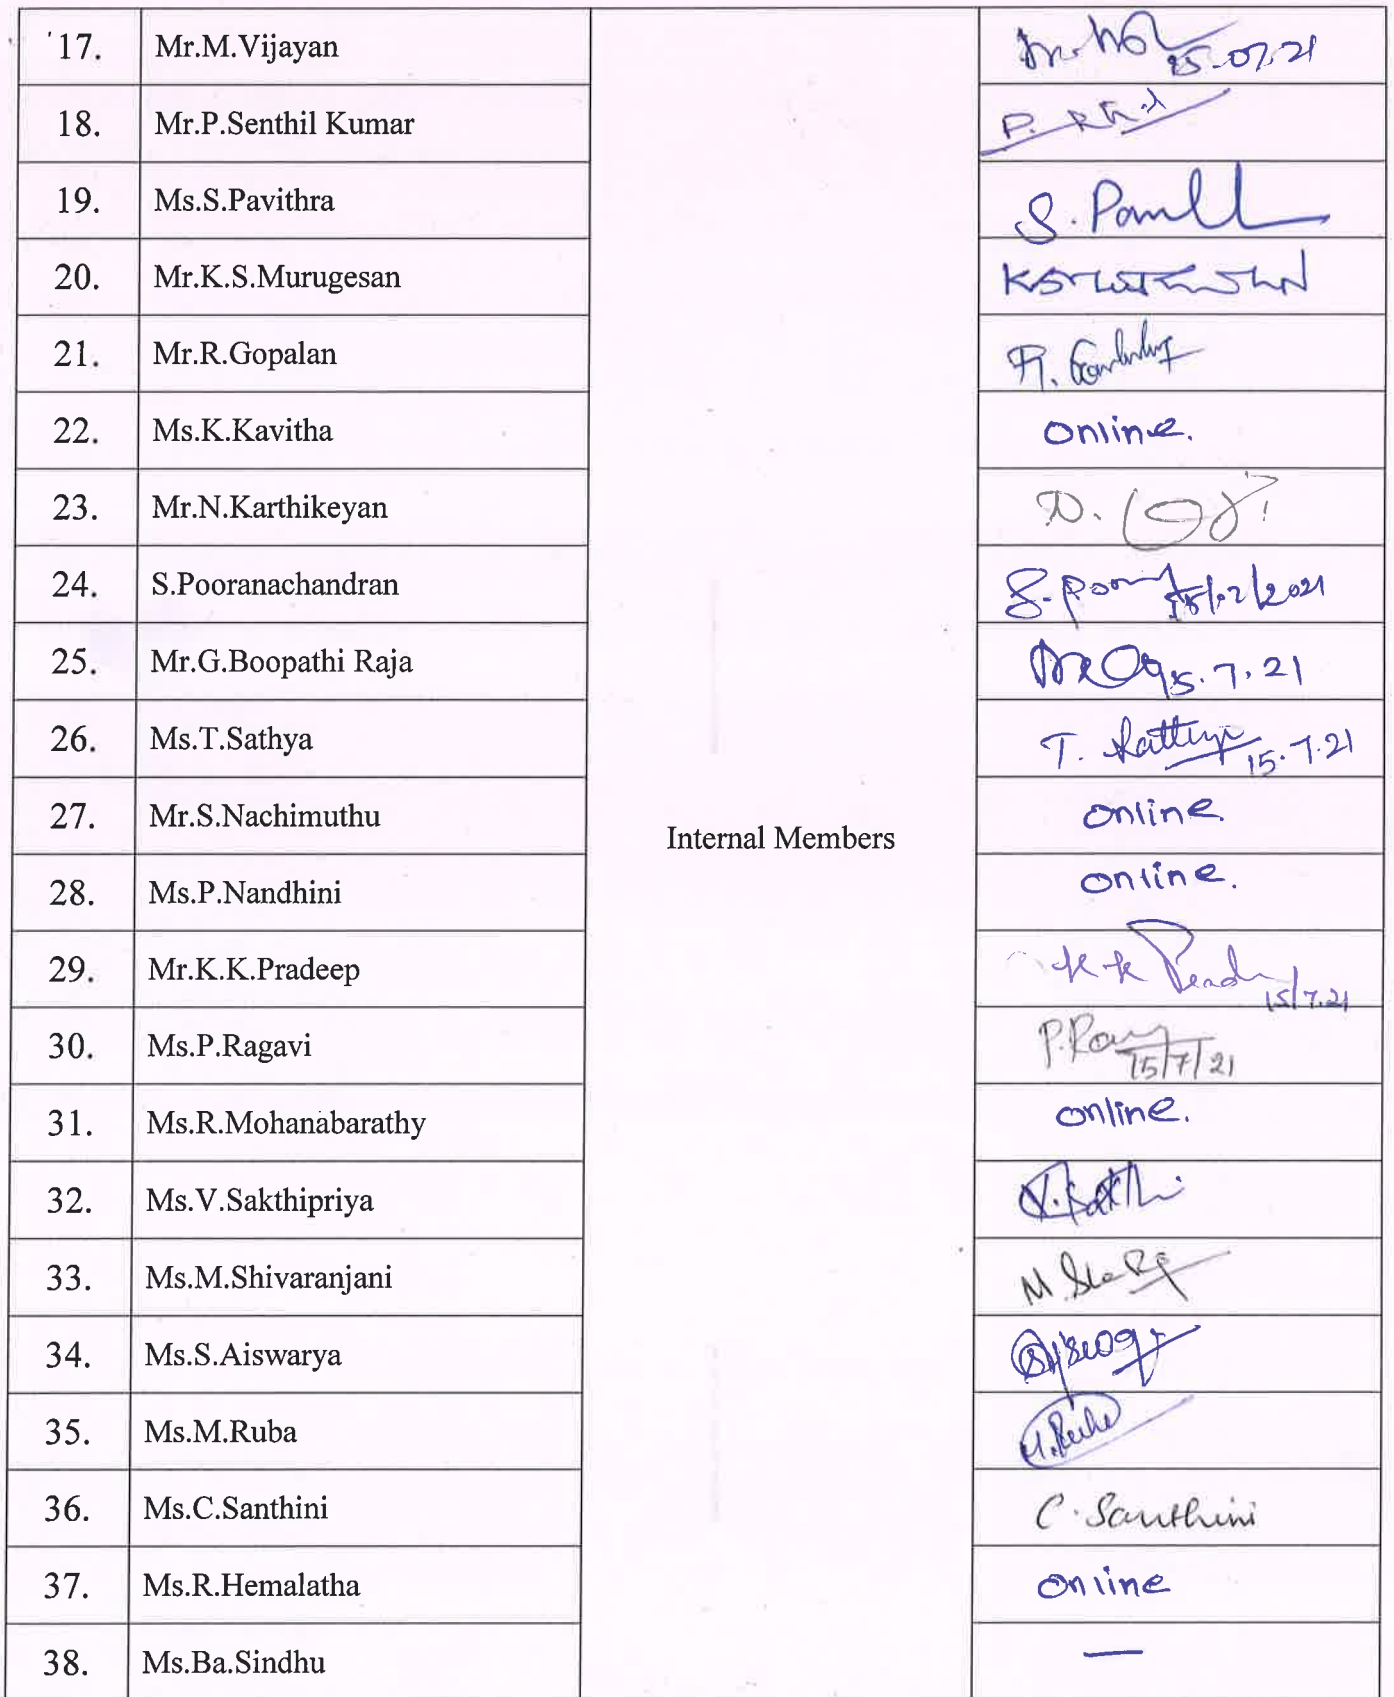 17. Mr.M.Vijayan 15.07.21
18. Mr.P.Senthil Kumar P.
19. Ms.S.Pavithra S.
20. Mr.K.S.Murugesan
21. Mr.R.Gopalan R.
22. Ms.K.Kavitha online.
23. Mr.N.Karthikeyan N.
24. S.Pooranachandran
25. Mr.G.Boopathi Raja 15.7.21
26. Ms.T.Sathya T. Sathya 15.7.21
27. Mr.S.Nachimuthu online.
Internal Members
28. Ms.P.Nandhini online.
29. Mr.K.K.Pradeep K K 15/7.21
30. Ms.P.Ragavi 15/7/21
31. Ms.R.Mohanabarathy online.
32. Ms.V.Sakthipriya V.Sakthi
33. Ms.M.Shivaranjani M.
34. Ms.S.Aiswarya
35. Ms.M.Ruba M.Ruba
36. Ms.C.Santhini C.Santhini
37. Ms.R.Hemalatha online
38. Ms.Ba.Sindhu —